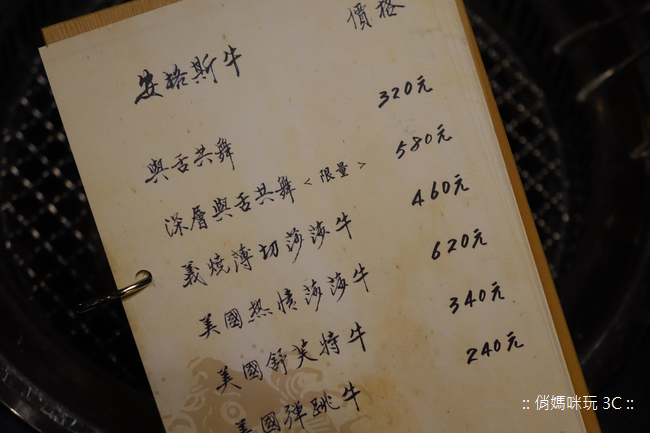 價格
安格斯牛
與舌共舞 320元
深層與舌共舞<限量> 580元
義燒薄切莎莎牛 460元
美國熱情莎莎牛 620元
美國舒芙特牛 340元
美國彈跳牛 240元
:: 俏媽咪玩 3C ::